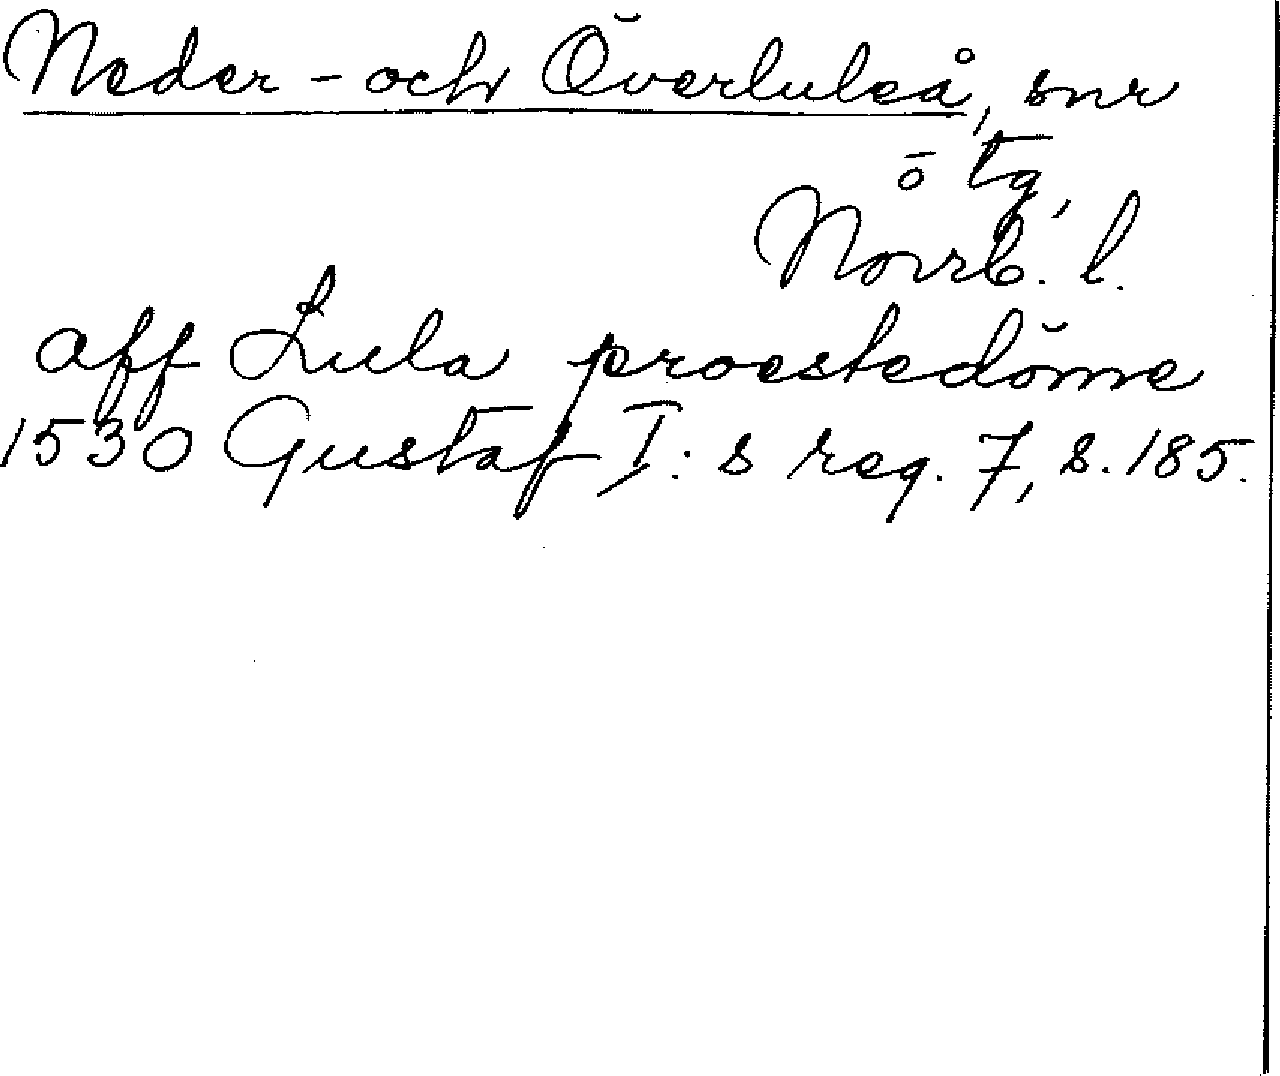 Neder- och Överluleå, snr
ö tg,
Norrb. l.
aff Lula proestedöme
1530 Gustaf I:s reg. 7, s. 185.